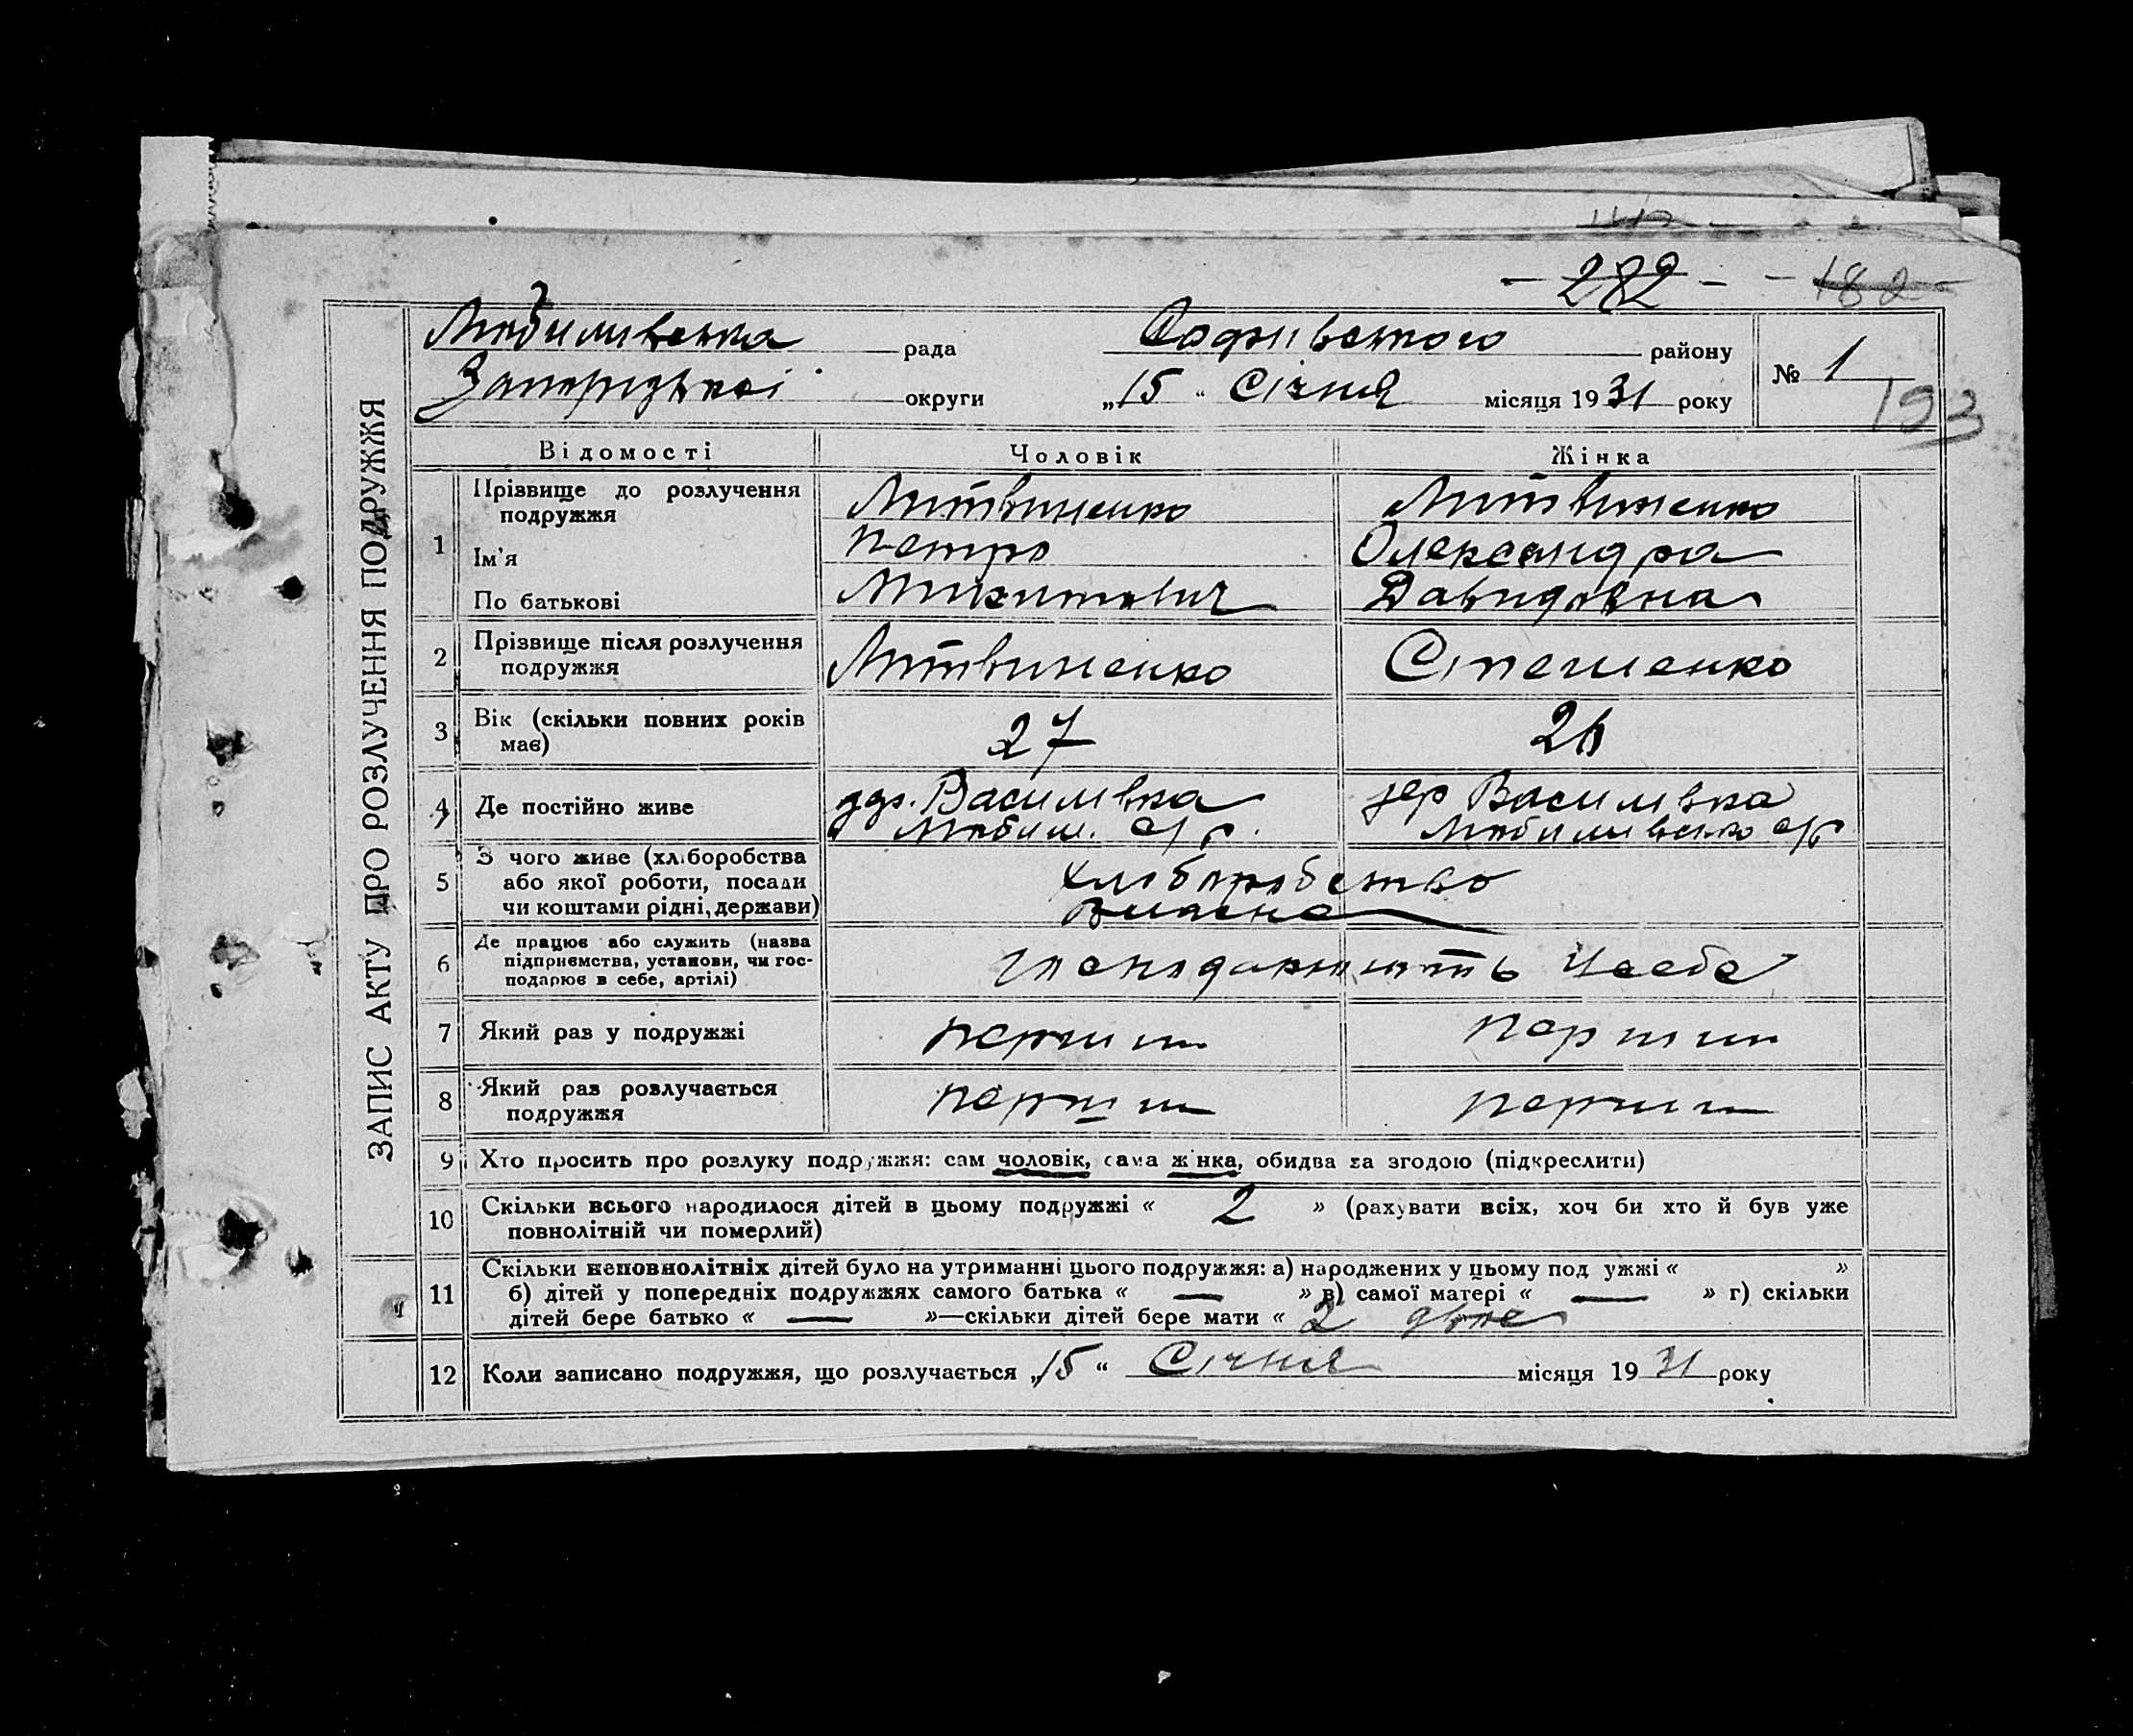 282 182
Любимивська рада Софиівського району № 1
Запоризької округи „15“ Січня місяця 1931 року
193
ЗАПИС АКТУ ПРО РОЗЛУЧЕННЯ ПОДРУЖЖЯ
Відомості Чоловік Жінка
1 Прізвище до розлучення Литвиненко Литвиненко
подружжя
Ім'я Петро Олександра
По батькові Микитович Давидовна
2 Прізвище після розлучення Литвиненко Степаненко
подружжя
3 Вік (скільки повних років 27 26
має)
4 Де постійно живе дер. Василивка дер Василивка
Любим. с/р. Любимивсько с/р
5 З чого живе (хліборобства хлиборобство
або якої роботи, посади
чи коштами рідні, держави) власне
6 Де працює або служить (назва
підприємства, установи, чи гос- господарюють у себе
подарює в себе, артілі)
7 Який раз у подружжі перши перши
8 Який раз розлучається перши перши
подружжя
9 Хто просить про розлуку подружжя: сам чоловік, сама жінка, обидва за згодою (підкреслити)
10 Скільки всього народилося дітей в цьому подружжі « 2 » (рахувати всіх, хоч би хто й був уже
повнолітній чи померлий)
11 Скільки неповнолітніх дітей було на утриманні цього подружжя: а) народжених у цьому подружжі « »
б) дітей у попередніх подружжях самого батька « — » в) самої матері « — » г) скільки
дітей бере батько « — »—скільки дітей бере мати « 2 двое
12 Коли записано подружжя, що розлучається „15“ Січня місяця 1931 року